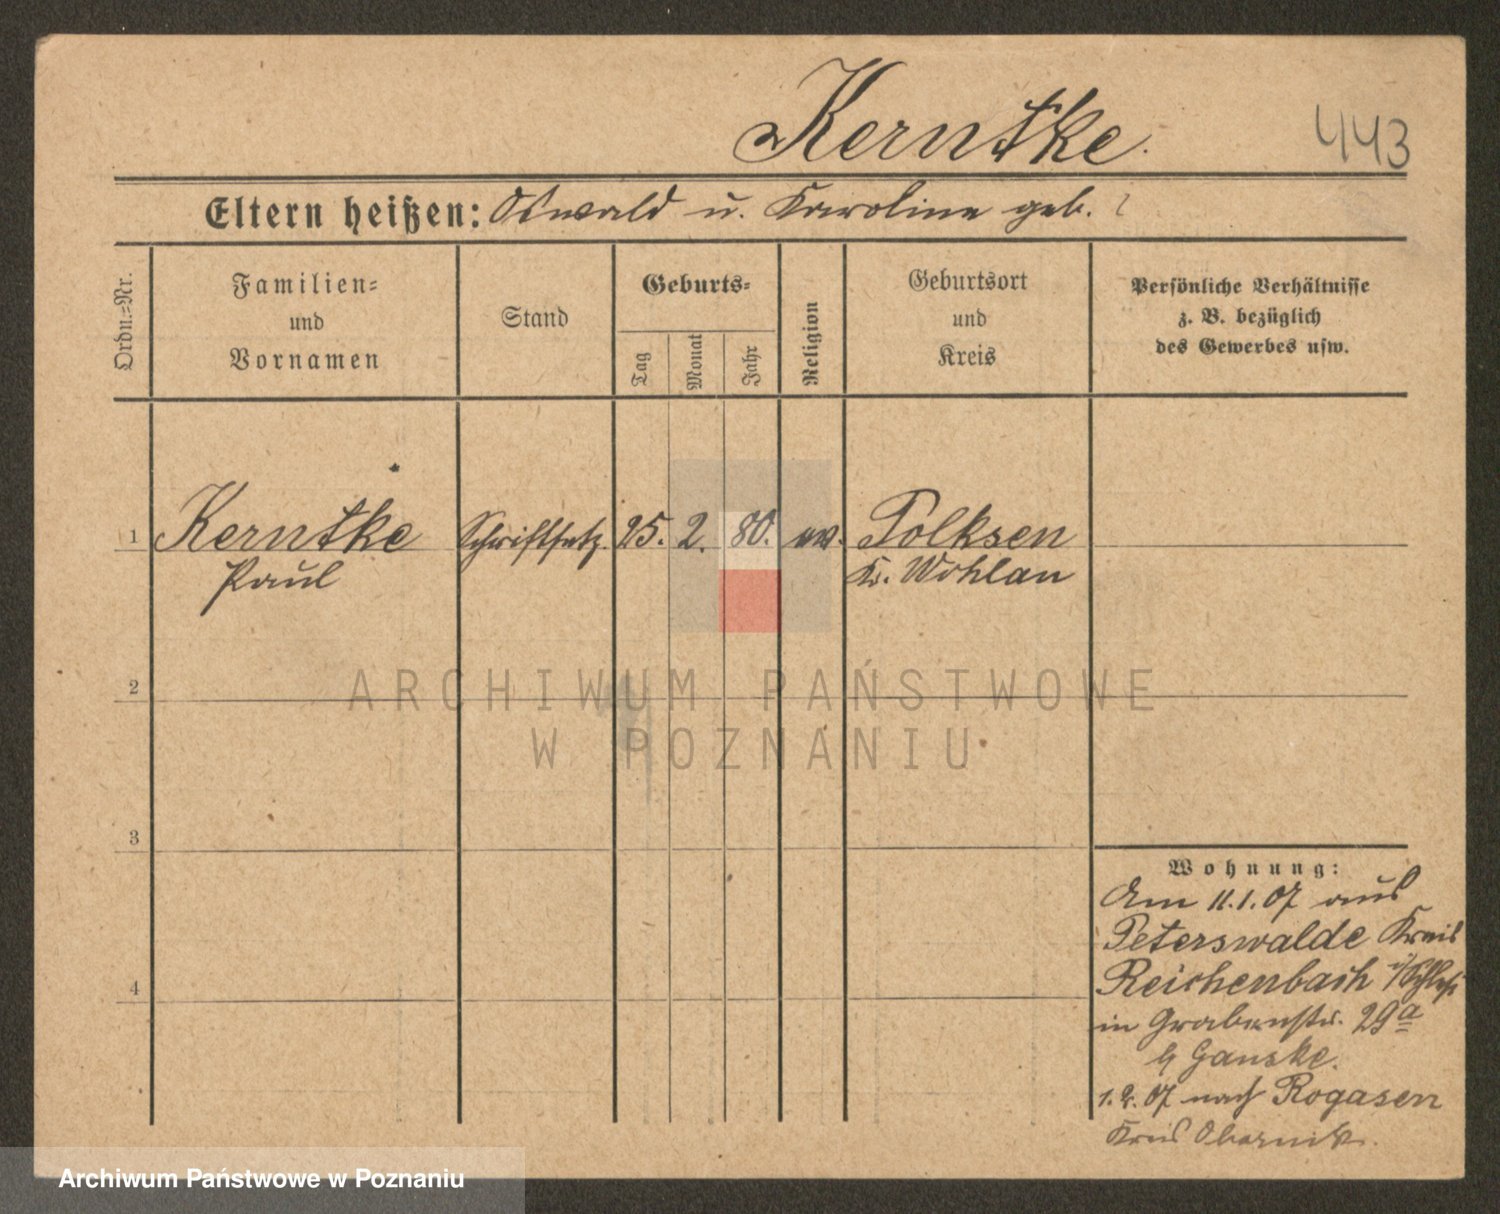 Kerntke.
443
Eltern heißen: Oswald u. Karoline geb. ?
Ordn.=Nr.
Familien=
und
Vornamen
Stand
Geburts=
Tag
Monat
Jahr
Religion
Geburtsort
und
Kreis
Persönliche Verhältnisse
z. B. bezüglich
des Gewerbes usw.
1 Kerntke Schriftsetz. 25. 2. 80. ev. Polksen
Paul Kr. Wohlau
ARCHIWUM PAŃSTWOWE
W POZNANIU
2
3
4
Wohnung:
Am 11.1.07 aus
Peterswalde Kreis
Reichenbach i/Schles.
in Grabenstr. 29a
b/ Ganske.
1.2.07 nach Rogasen
Kreis Obornik.
Archiwum Państwowe w Poznaniu